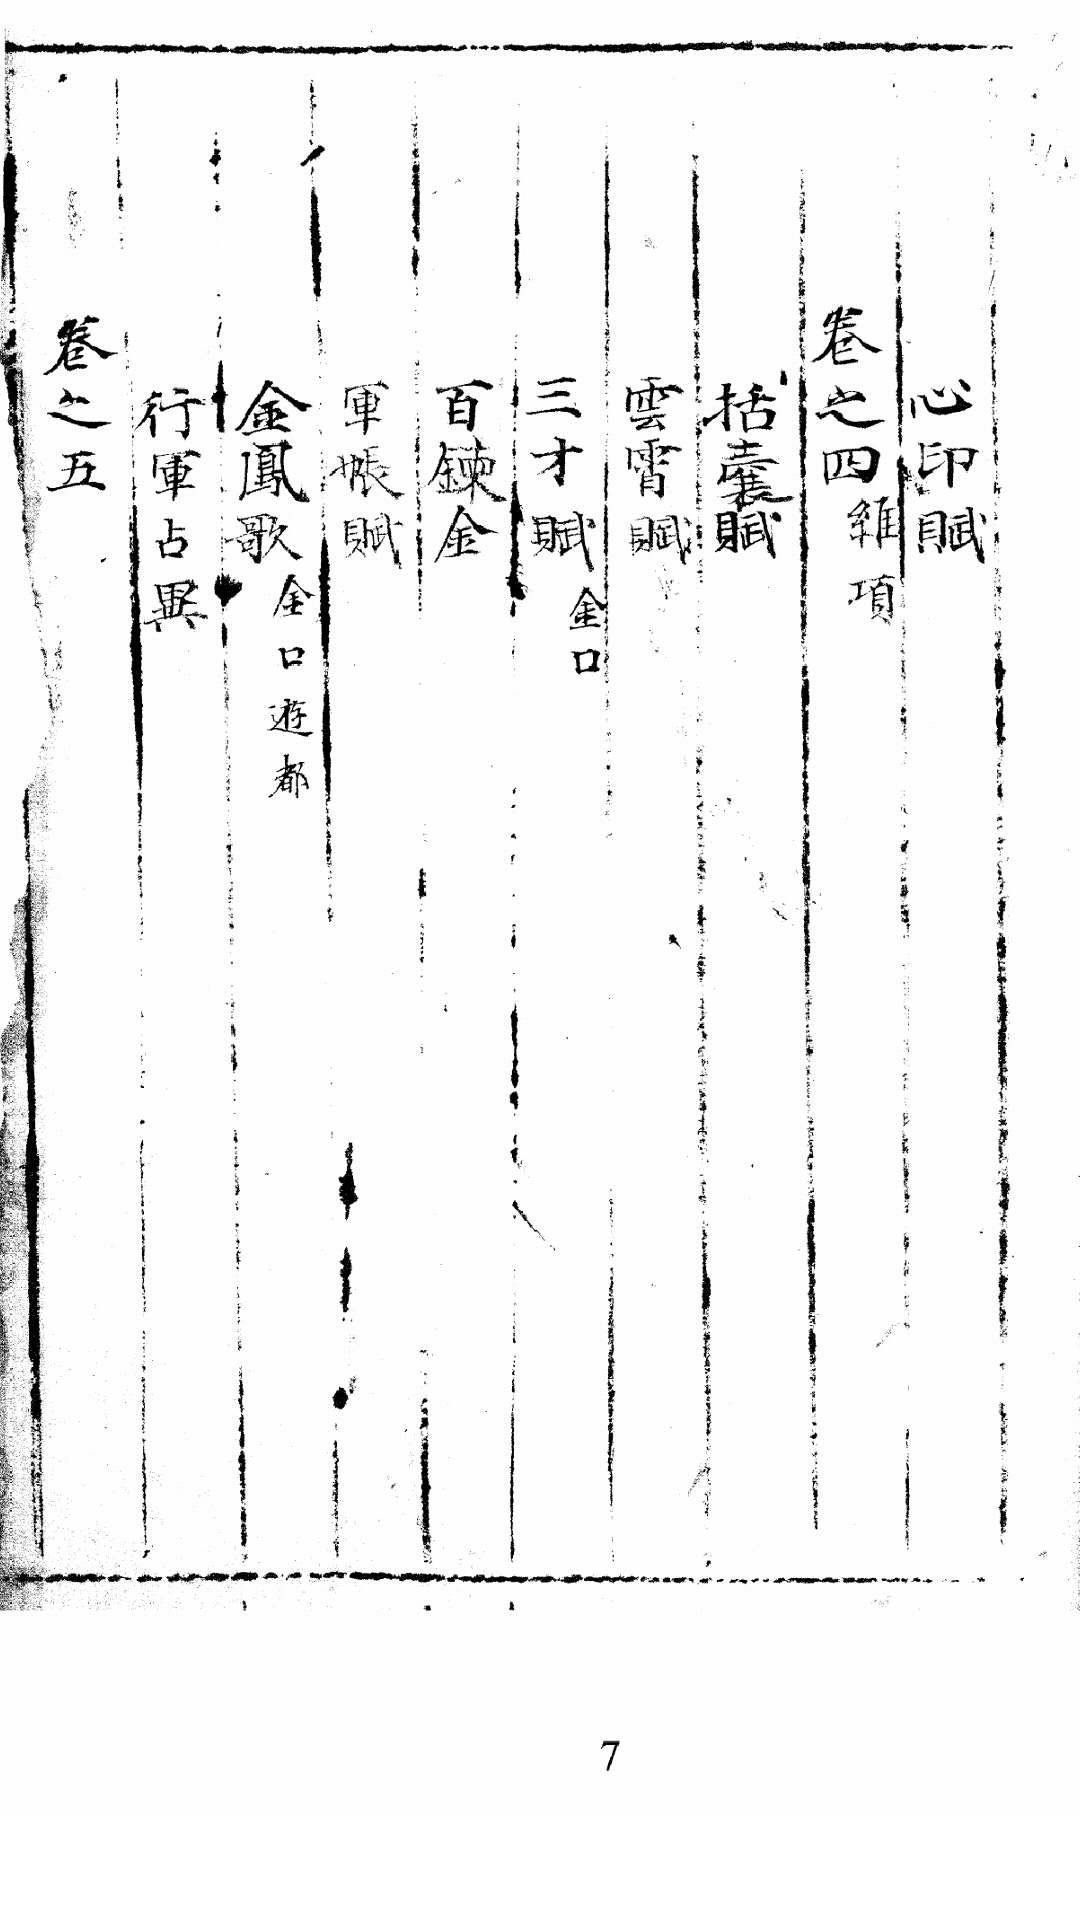 心印賦
卷之四 雜項
括囊賦
雲霄賦
三才賦 金口
百鍊金
軍帳賦
金鳳歌 金口遊都
行軍占異
卷之五
7